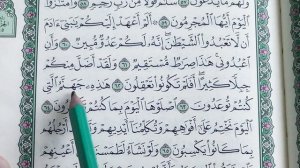 وَلَهُم مَّا يَدَّعُونَ ٥٧ سَلَٰمٌ قَوْلًا مِّن رَّبٍّ رَّحِيمٍ ٥٨ وَٱمْتَٰزُوا۟
ٱلْيَوْمَ أَيُّهَا ٱلْمُجْرِمُونَ ٥٩ أَلَمْ أَعْهَدْ إِلَيْكُمْ يَٰبَنِىٓ ءَادَمَ
أَن لَّا تَعْبُدُوا۟ ٱلشَّيْطَٰنَ إِنَّهُۥ لَكُمْ عَدُوٌّ مُّبِينٌ ٦٠ وَأَنِ
ٱعْبُدُونِى هَٰذَا صِرَٰطٌ مُّسْتَقِيمٌ ٦١ وَلَقَدْ أَضَلَّ مِنكُمْ
جِبِلًّا كَثِيرًا أَفَلَمْ تَكُونُوا۟ تَعْقِلُونَ ٦٢ هَٰذِهِۦ جَهَنَّمُ ٱلَّتِى
كُنتُمْ تُوعَدُونَ ٦٣ ٱصْلَوْهَا ٱلْيَوْمَ بِمَا كُنتُمْ تَكْفُرُونَ ٦٤
ٱلْيَوْمَ نَخْتِمُ عَلَىٰٓ أَفْوَٰهِهِمْ وَتُكَلِّمُنَآ أَيْدِيهِمْ وَتَشْهَدُ أَرْجُلُهُم
بِمَا كَانُوا۟ يَكْسِبُونَ ٦٥ وَلَوْ نَشَآءُ لَطَمَسْنَا